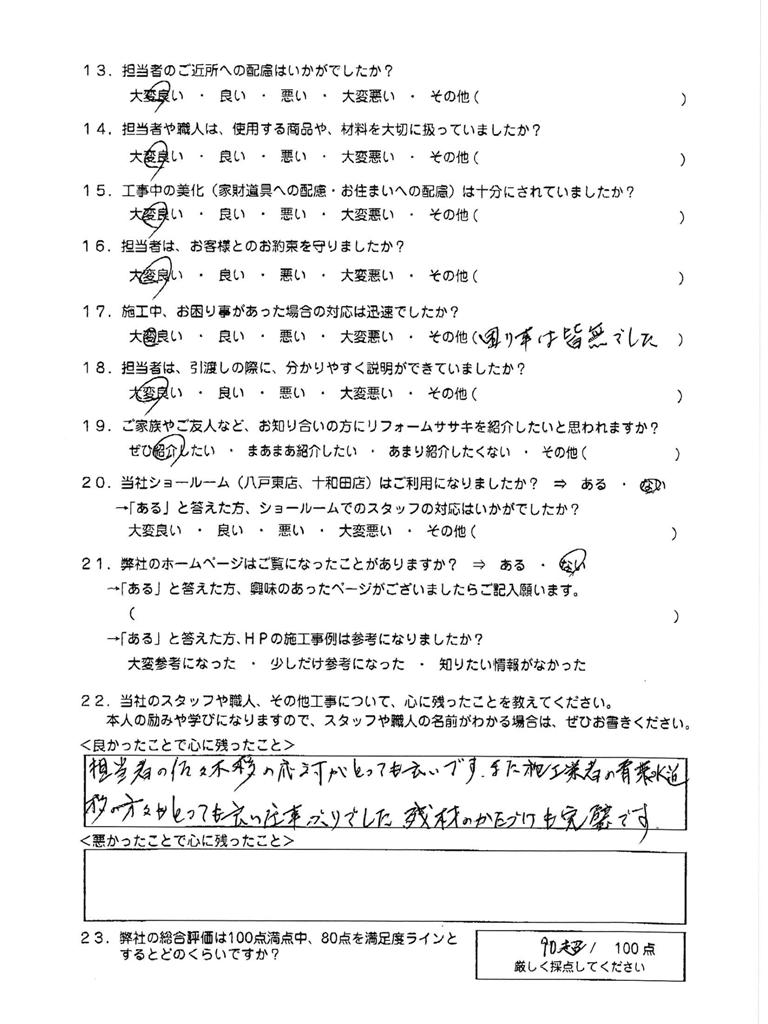 13．担当者のご近所への配慮はいかがでしたか？
大変良い ・ 良い ・ 悪い ・ 大変悪い ・ その他（ ）
14．担当者や職人は、使用する商品や、材料を大切に扱っていましたか？
大変良い ・ 良い ・ 悪い ・ 大変悪い ・ その他（ ）
15．工事中の美化（家財道具への配慮・お住まいへの配慮）は十分にされていましたか？
大変良い ・ 良い ・ 悪い ・ 大変悪い ・ その他（ ）
16．担当者は、お客様とのお約束を守りましたか？
大変良い ・ 良い ・ 悪い ・ 大変悪い ・ その他（ ）
17．施工中、お困り事があった場合の対応は迅速でしたか？
大変良い ・ 良い ・ 悪い ・ 大変悪い ・ その他（困り事は皆無でした ）
18．担当者は、引渡しの際に、分かりやすく説明ができていましたか？
大変良い ・ 良い ・ 悪い ・ 大変悪い ・ その他（ ）
19．ご家族やご友人など、お知り合いの方にリフォームササキを紹介したいと思われますか？
ぜひ紹介したい ・ まあまあ紹介したい ・ あまり紹介したくない ・ その他（ ）
20．当社ショールーム（八戸東店、十和田店）はご利用になりましたか？ ⇒ ある ・ ない
→「ある」と答えた方、ショールームでのスタッフの対応はいかがでしたか？
大変良い ・ 良い ・ 悪い ・ 大変悪い ・ その他（ ）
21．弊社のホームページはご覧になったことがありますか？ ⇒ ある ・ ない
→「ある」と答えた方、興味のあったページがございましたらご記入願います。
（ ）
→「ある」と答えた方、ＨＰの施工事例は参考になりましたか？
大変参考になった ・ 少しだけ参考になった ・ 知りたい情報がなかった
22．当社のスタッフや職人、その他工事について、心に残ったことを教えてください。
本人の励みや学びになりますので、スタッフや職人の名前がわかる場合は、ぜひお書きください。
＜良かったことで心に残ったこと＞
担当者の佐々木様の応対がとっても良いです。また施工業者の青葉水道
様の方々がとっても良い仕事ぶりでした 残材のかたづけも完璧です。
＜悪かったことで心に残ったこと＞
23．弊社の総合評価は100点満点中、80点を満足度ラインと
するとどのくらいですか？
90超/ 100点
厳しく採点してください